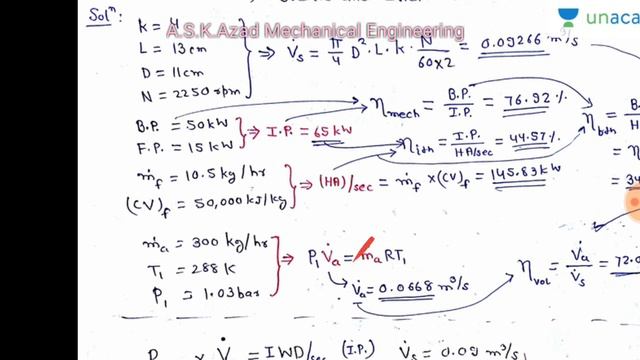 Solⁿ:
A.S.K.Azad Mechanical Engineering
unaca
k = 4
L = 13cm
D = 11cm
N = 2250 rpm
⇒ V̇s = π/4 D². L. k. N/(60×2) = 0.09266 m³/s
B.P. = 50kW
F.P. = 15 kW
⇒ I.P. = 65 kW
ηmech = B.P./I.P. = 76.92 %
ηith = I.P./HA/sec = 44.57 %
ηbth = B.P/HA
= η
= 34
ṁf = 10.5 kg/hr
(CV)f = 50,000 kJ/kg
⇒ (HA)/sec = ṁf × (CV)f = 145.83 kW
ṁa = 300 kg/hr
T₁ = 288 K
P₁ = 1.03 bar
⇒ P₁ V̇a = ṁa RT₁
V̇a = 0.0668 m³/s
ηvol = V̇a/V̇s = 72.0
= IWD/sec (I.P.)
V̇s = 0.09 m³/s